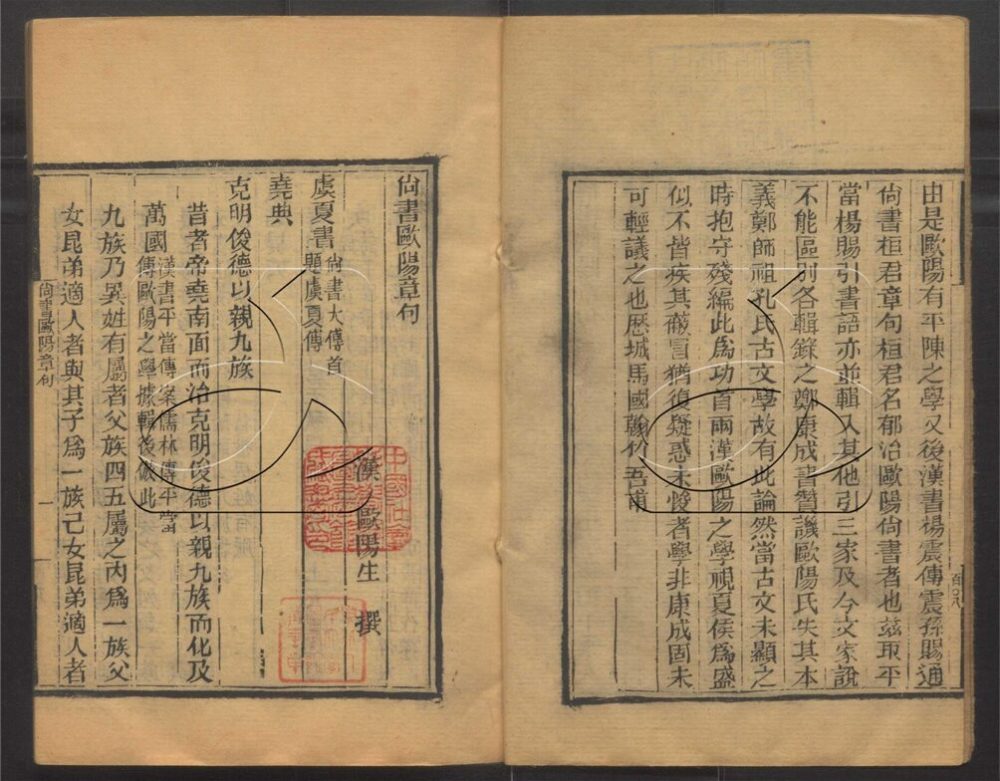 由是歐陽有平陳之學又後漢書楊震傳震孫賜通
尚書桓君章句桓君名郁治歐陽尚書者也兹取平
當楊賜引書語亦並輯入其他引三家及今文家說
不能區別各輯錄之鄭康成書贊譏歐陽氏失其本
義鄭師祖孔氏古文學故有此論然當古文未顯之
時抱守殘編此爲功首兩漢歐陽之學視夏侯爲盛
似不皆疾其蔽冒猶復疑惑未悛者學非康成固未
可輕議之也歷城馬國翰竹吾甫
尚書歐陽章句
漢 歐陽生 撰
虞夏書 尚書大傳首
題虞夏傳
堯典
克明俊德以親九族
昔者帝堯南面而治克明俊德以親九族而化及
萬國 漢書平當傳案儒林傳平當
傳歐陽之學據輯後倣此
九族乃異姓有屬者父族四五屬之內爲一族父
女昆弟適人者與其子爲一族己女昆弟適人者
尚書歐陽章句
一